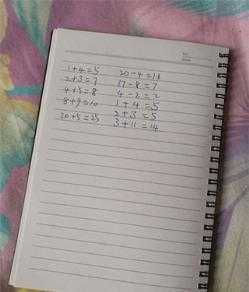 1+4=5 20-4=16
2+3=7 17-8=7
4+5=8 4-2=2
8+9=10 1+4=5
20+5=25 2+3=5
3+11=14